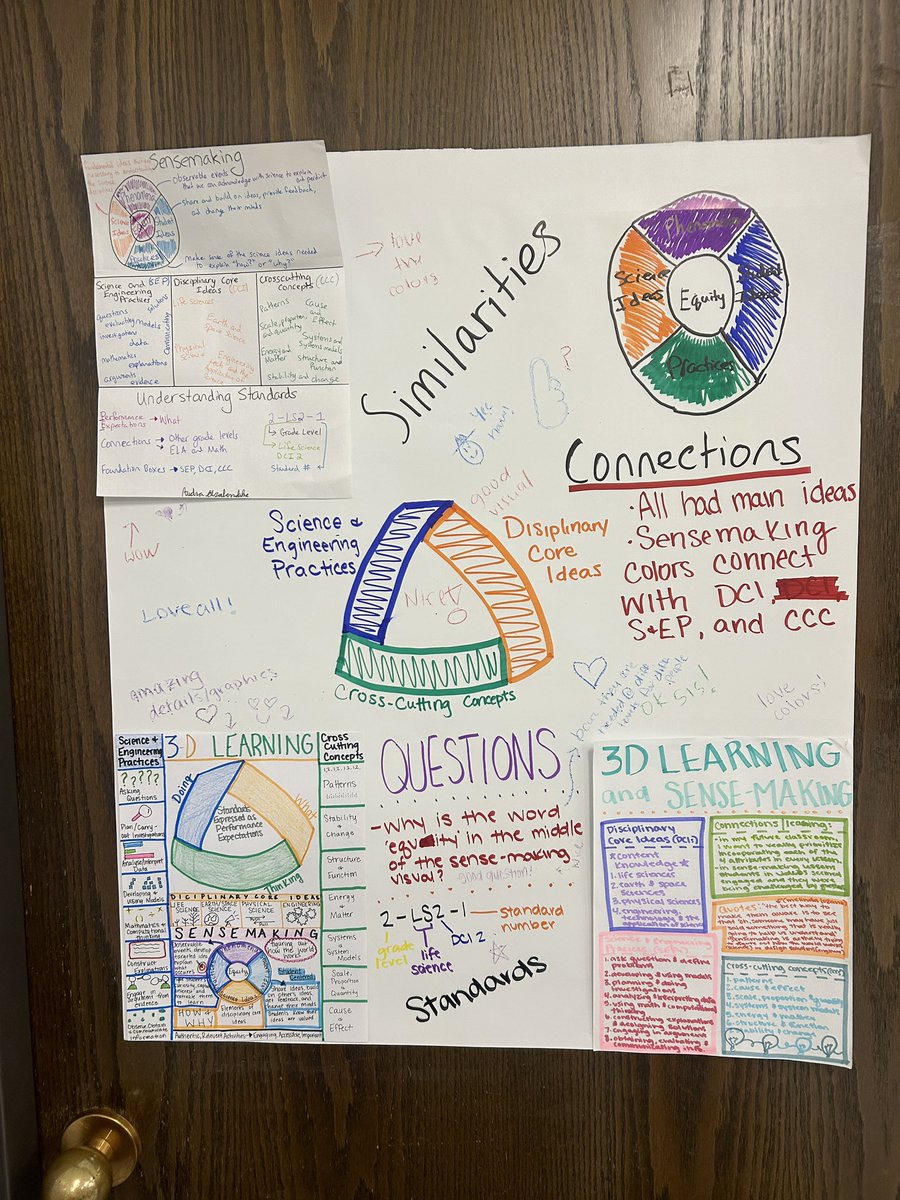 Sensemaking
observable events
that we can acknowledge with science to explain
and predict
share and build on ideas, provide feedback,
and change their minds
Phenomena
Science
Ideas
Student
Ideas
Practices
make sense of the science ideas needed
to explain "how?" or "why?"
Science and (SEP)
Engineering
Practices
questions
solutions
evaluating
models
investigations
data
communicating
mathematics
explanations
arguments
evidence
Disciplinary Core
Ideas (DCI)
Life Sciences
Earth and
Space Science
Physical
Science
Crosscutting (CCC)
Concepts
Patterns
Cause
and
Effect
Scale, proportion,
and quantity
Systems and
Systems models
Energy and
Matter
structure and
function
Stability and change
Understanding Standards
Performance → What
Expectations
Connections → Other grade levels
→ ELA and Math
Foundation Boxes → SEP, DCI, CCC
2-LS2-1
Grade Level
Life Science
DCI 2
Standard #
→ love
the
colors
Similarities
Phenomena
Science
Ideas
Equity
Student
Ideas
Practices
?
Yes
now!
good
visual
wow
Love all!
amazing
details/graphics
Science &
Engineering
Practices
Disiplinary
Core
Ideas
Cross-Cutting Concepts
Connections
• All had main ideas
• Sensemaking
colors connect
with DCI,
S&EP, and CCC
love
colors!
Science &
Engineering
Practices
????
Asking
Questions
Plan/Carry-
out Investigations
Analyze/Interpret
Data
Developing &
Using Models
Mathematics &
Computational
thinking
Construct Explanations
Engage in
argument from
evidence
Obtain &
communicate
information
3-D LEARNING
Doing
What
Thinking
Standards
Expressed as
Performance
Expectations
DICIPLINARY CORE IDEAS
LIFE
SCIENCE
EARTH/SPACE
SCIENCE
PHYSICAL
SCIENCE
ENGINEERING
SENSEMAKING
Figuring out
how the world
works
Equity
Science Ideas
Student
Centered
HOW &
WHY
Elements of
disciplinary core
ideas
Students know their
ideas are valued
Authentic, Relevant Activities → Engaging, Accessible, Important
Cross
Cutting
Concepts
Patterns
Stability
&
Change
Structure
&
Function
Energy
&
Matter
Systems
&
System
Models
Scale,
Proportion
& Quantity
Cause
&
Effect
QUESTIONS
- Why is the word
'equity' in the middle
of the sense-making
visual?
good question!
2-LS2-1 — standard
number
grade
level
life
science
DCI 2
Standards
3D LEARNING
and SENSE-MAKING
Disciplinary
Core Ideas (DCI)
*content
knowledge*
1. life sciences
2. earth & space
sciences
3. physical sciences
4. engineering,
technology, & the
application of science
Connections/learning:
- in my future classroom,
I want to really prioritize
incorporating each of the
4 attributes in every lesson.
Quotes:
Science & engineering
1. ask question & define
problems
2. developing & using models
3. planning & doing
investigations
4. analyzing & interpreting data
5. using math & computational
thinking
6. constructing explanations
& designing solutions
7. engaging in argument
8. obtaining, evaluating &
communicating info.
Cross-cutting concepts (CCC)
1. patterns
2. cause & effect
3. scale, proportion & quantity
4. systems & system
models
5. energy & matter
6. structure & function
7. stability & change